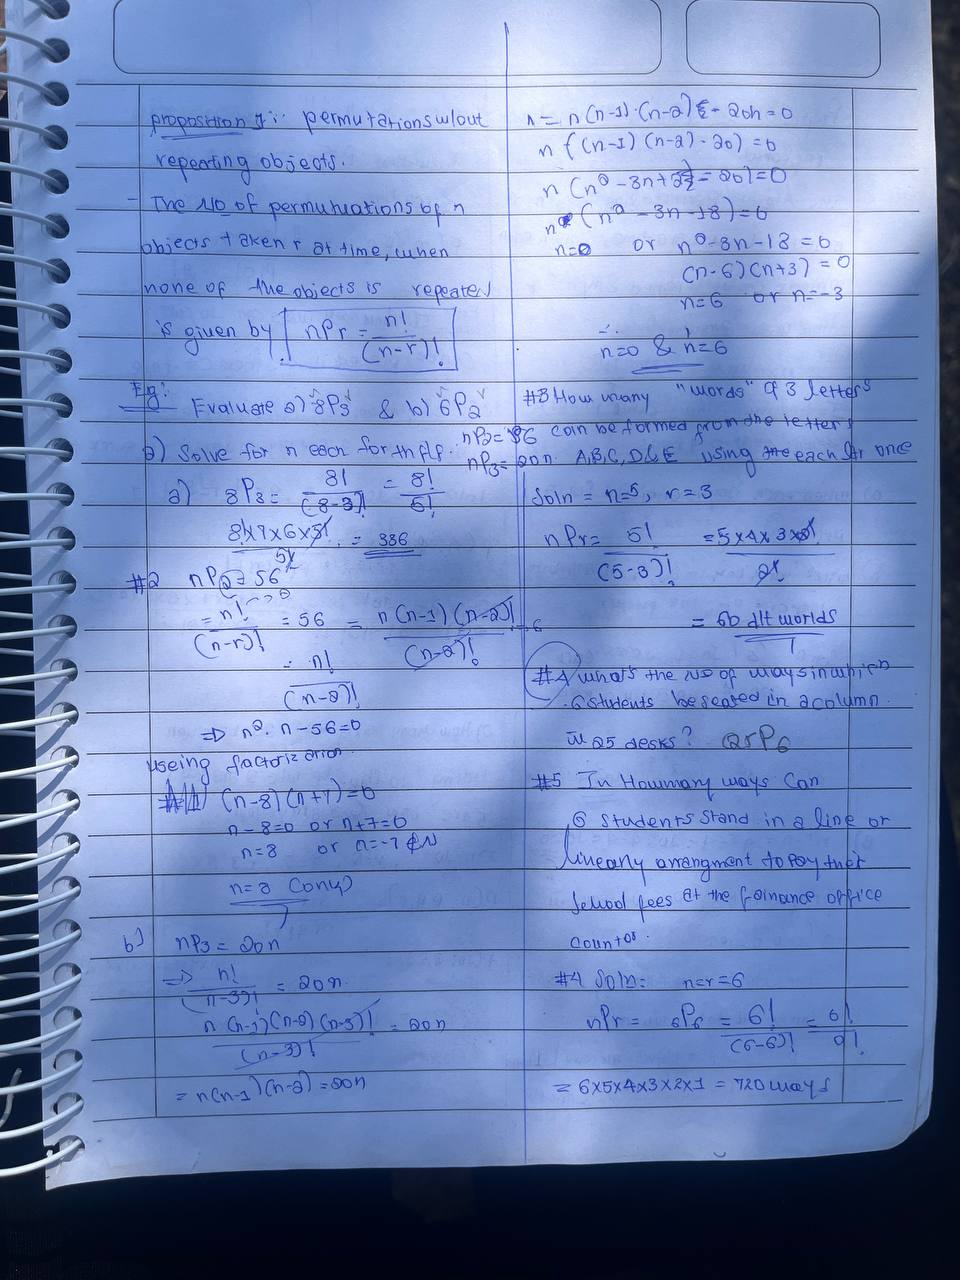 proposition 1:: permutations w/out
repeating objects.
- The No of permutuations of n
objects taken r at time, when
none of the objects is repeated
is given by nPr = n!/(n-r)!
Eg: Evaluate a) 8P3 & b) 6P2
2) Solve for n each for th flf. nP2 = 56
nP3 = 20n
a) 8P3 = 8!/(8-3)! = 8!/5!
8x7x6x5!/5! = 336
#2 nP2 = 56
= n!/(n-r)! = 56 = n(n-1)(n-2)!/(n-2)!
= n!/(n-2)!
⇒ n². n-56=0
useing factorization
(n-8)(n+7)=0
n-8=0 or n+7=0
n=8 or n=-7 ∉ N
n=8 (only)
b) nP3 = 20n
⇒ n!/(n-3)! = 20n
n(n-1)(n-2)(n-3)!/(n-3)! = 20n
= n(n-1)(n-2)=20n
n = n(n-1)·(n-2) - 20n=0
n ((n-1)(n-2)-20) =0
n (n²-3n+2 - 20)=0
n (n²-3n-18)=0
n=0 or n²-3n-18=0
(n-6)(n+3)=0
n=6 or n=-3
∴
n=0 & n=6
#3 How many "words" of 3 letters
can be formed from the letters
A,B,C,D & E using the each for once
Soln = n=5, r=3
nPr= 5!/(5-3)! =5x4x3x2!/2!
= 60 dlt worlds
#4 what's the No of ways in which
6 students be seated in a column
w 25 desks? 25P6
#5 In Howmany ways Can
6 students stand in a line or
lineany arrangment to pay their
school fees at the fainance office
countor.
#4 Soln: n=r=6
nPr = 6P6 = 6!/(6-6)! = 6!/0!
= 6x5x4x3x2x1 = 720 ways